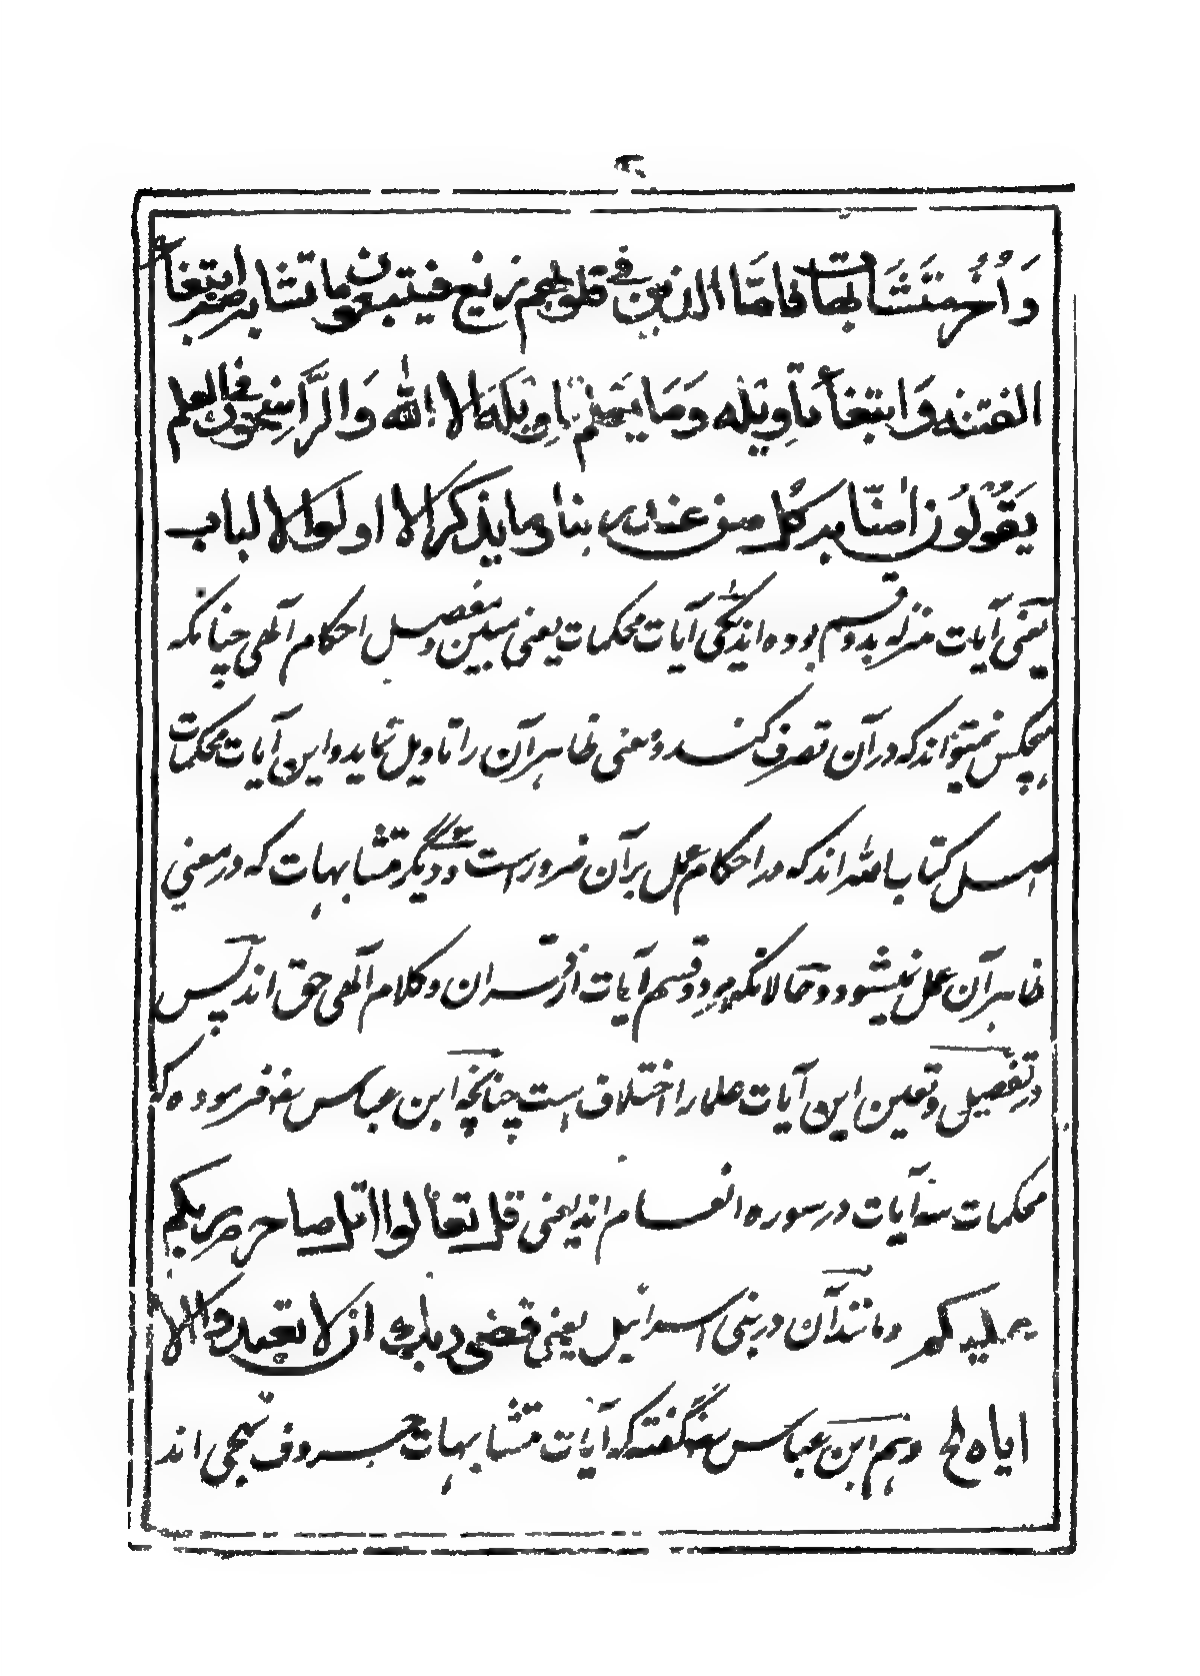 ۲
وَاُخَرُ مُتَشَابِهَاتٌ فَاَمَّا الذین فی قلوبهم زیغ فیتبعون ما تشابه منه ابتغاء
الفتنه وَابتغاء تاَوِیْله وَمَا یَعْلَمُ تاویلَهُ الا الله وَالرَّاسِخون فی العلم
یَقُوْلُونَ اٰمَنَّا به کُلٌ من عند ربنا وما یذکر الا اولوا الالباب
یعنی آیات منزله بدو قسم بوده اند یکی آیات محکمات یعنی مبین و مفصل احکام آلهی چنانکه
هیچکس نمیتواند که در آن تصرف کند و معنی ظاهر آن را تاویل نماید و این آیات محکمات
اصل کتاب الله اند که در احکام عمل بر آن ضرور است و دیگر متشابهات که در معنی
ظاهر آن عمل نمیشود و حالانکه هر دو قسم آیات از قرآن و کلام آلهی حق اند پس
در تفصیل و تعین این آیات علما را اختلاف است چنانچه ابن عباس رضه فرموده که
محکمات سه آیات در سوره انعام اند یعنی قل تعالوا اتل ما حرم ربکم
علیکم و مانند آن در بنی اسرائیل یعنی قضی ربک ان لا تعبدوا الا
ایاه الخ و هم ابن عباس رضه گفته که آیات متشابهات حروف تهجی اند